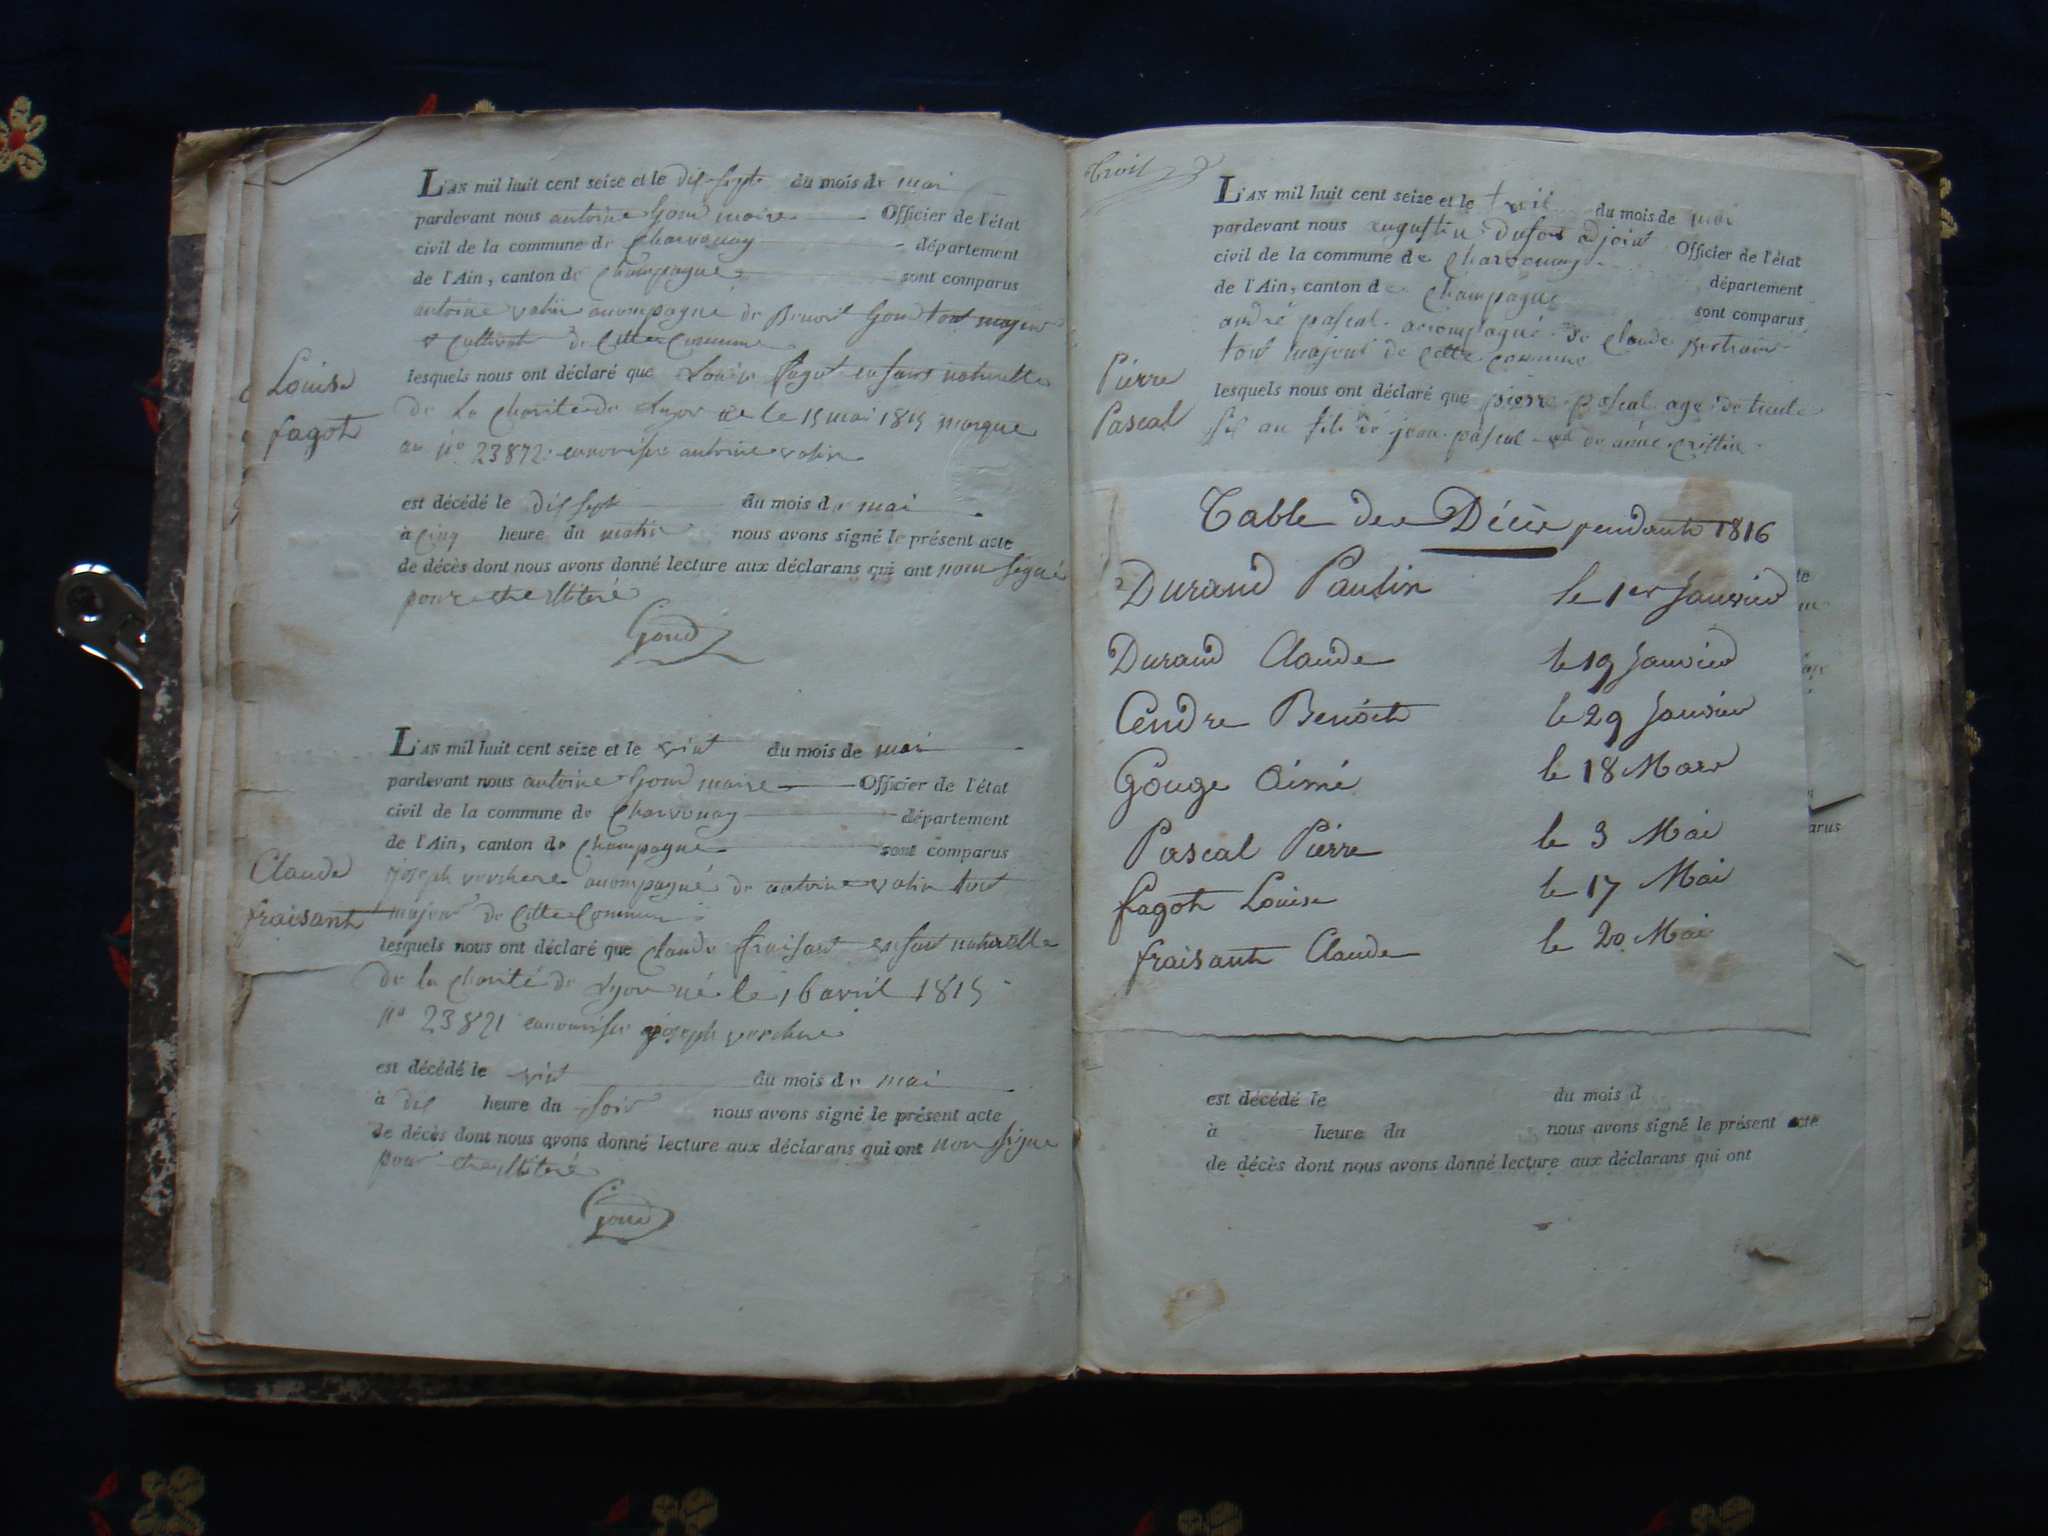 L'AN mil huit cent seize et le dix sept du mois de mai
pardevant nous antoine Goud maire Officier de l'état
civil de la commune de Charvonay département
de l'Ain, canton de Champagne sont comparus
antoine vatin acompagné de Benoit Goud tout majeur
& Cultivat de Cette Commune
Louise
fagot
lesquels nous ont déclaré que Louise fagot enfant naturelle
de La charite de Lyon né le 15 mai 1815 marque
au no 23872 antoine vatin
est décédé le dix sept du mois de mai
à Cinq heure du matin nous avons signé le présent acte
de décès dont nous avons donné lecture aux déclarans qui ont non signé
pour etre illiteré
Goud
L'AN mil huit cent seize et le vint du mois de mai
pardevant nous antoine Goud maire Officier de l'état
civil de la commune de Charvonay département
de l'Ain, canton de Champagne sont comparus
joseph vershere acompagné de antoine vatin tout
majeur de Cette Commune
Claude
fraisant
lesquels nous ont déclaré que Claude fraisant enfant naturelle
de la charité de Lyon né le 16 avril 1815
no 23821 joseph
est décédé le vint du mois de mai
à dix heure du soir nous avons signé le présent acte
de décès dont nous avons donné lecture aux déclarans qui ont non signe
pour etre illiteré
Goud
L'AN mil huit cent seize et le troi du mois de mai
pardevant nous augustin adjoint Officier de l'état
civil de la commune de Charvonay département
de l'Ain, canton de Champagne sont comparus
andré pascal acompagné de Claude Bertrand
tout majeur de cette commune
Pierre
Pascal
lesquels nous ont déclaré que pierre pascal age de trente
six an fils de jean pascal
Table des Décès pendant 1816
Durand Paulin le 1er Janvier
Durand Claude le 19 Janvier
Cendre Benoit le 29 Janvier
Gouge Aimé le 18 Mars
Pascal Pierre le 3 Mai
fagot Louise le 17 Mai
fraisant Claude le 20 Mai
est décédé le du mois d
à heure du nous avons signé le présent acte
de décès dont nous avons donné lecture aux déclarans qui ont